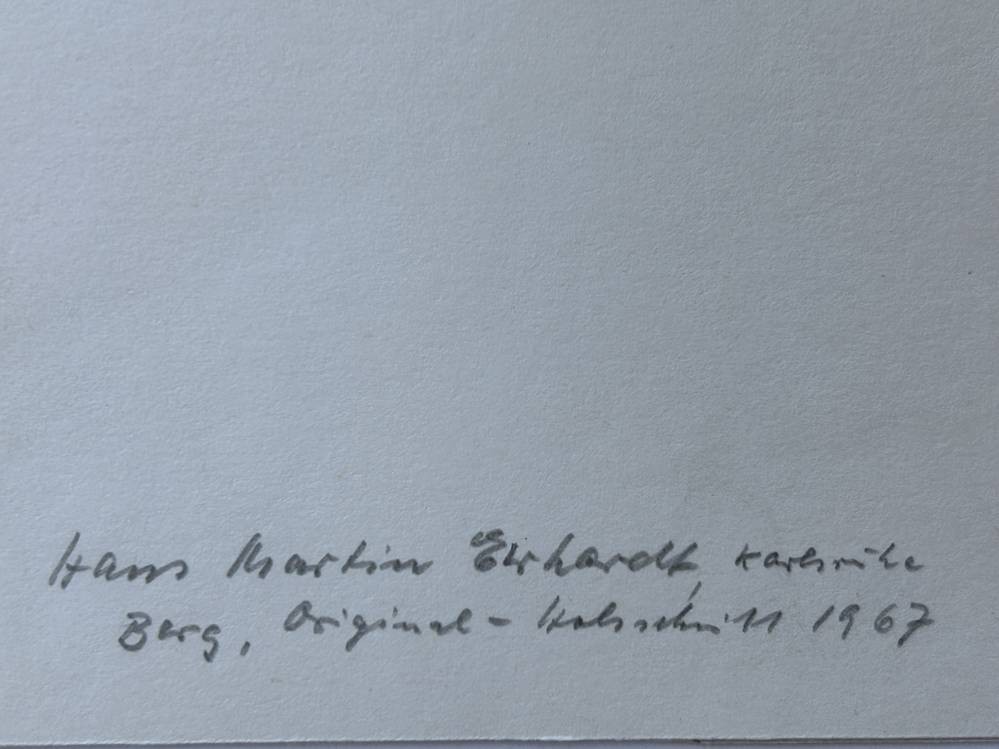 Hans Martin Erhardt, Karlsruhe
Berg, Original-Holzschnitt 1967